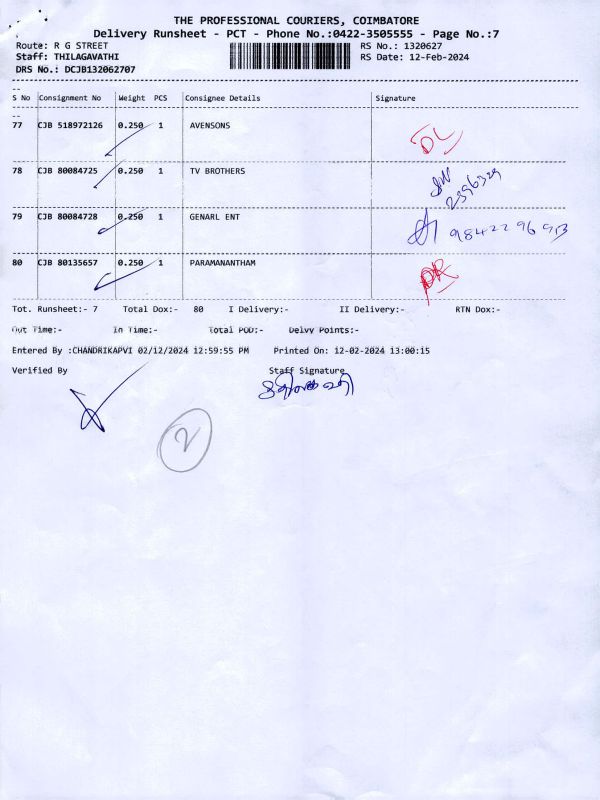 THE PROFESSIONAL COURIERS, COIMBATORE
Delivery Runsheet - PCT - Phone No.:0422-3505555 - Page No.:7
Route: R G STREET RS No.: 1320627
Staff: THILAGAVATHI RS Date: 12-Feb-2024
DRS No.: DCJB132062707
S No Consignment No Weight PCS Consignee Details Signature
77 CJB 518972126 0.250 1 AVENSONS DL
78 CJB 80084725 0.250 1 TV BROTHERS
2396329
79 CJB 80084728 0.250 1 GENARL ENT
80 CJB 80135657 0.250 1 PARAMANANTHAM
Tot. Runsheet:- 7 Total Dox:- 80 I Delivery:- II Delivery:- RTN Dox:-
Out Time:- In Time:- Total POD:- Delvy Points:-
Entered By :CHANDRIKAPVI 02/12/2024 12:59:55 PM Printed On: 12-02-2024 13:00:15
Verified By Staff Signature
2